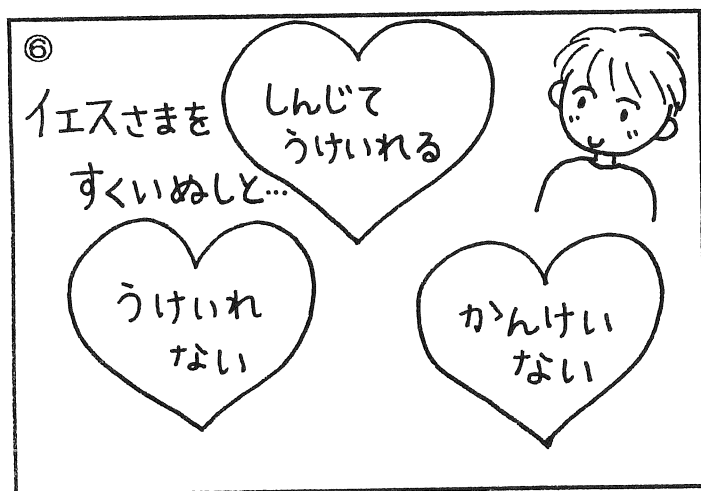 ⑥
イエスさまを
すくいぬしと…
しんじて
うけいれる
うけいれ
ない
かんけい
ない